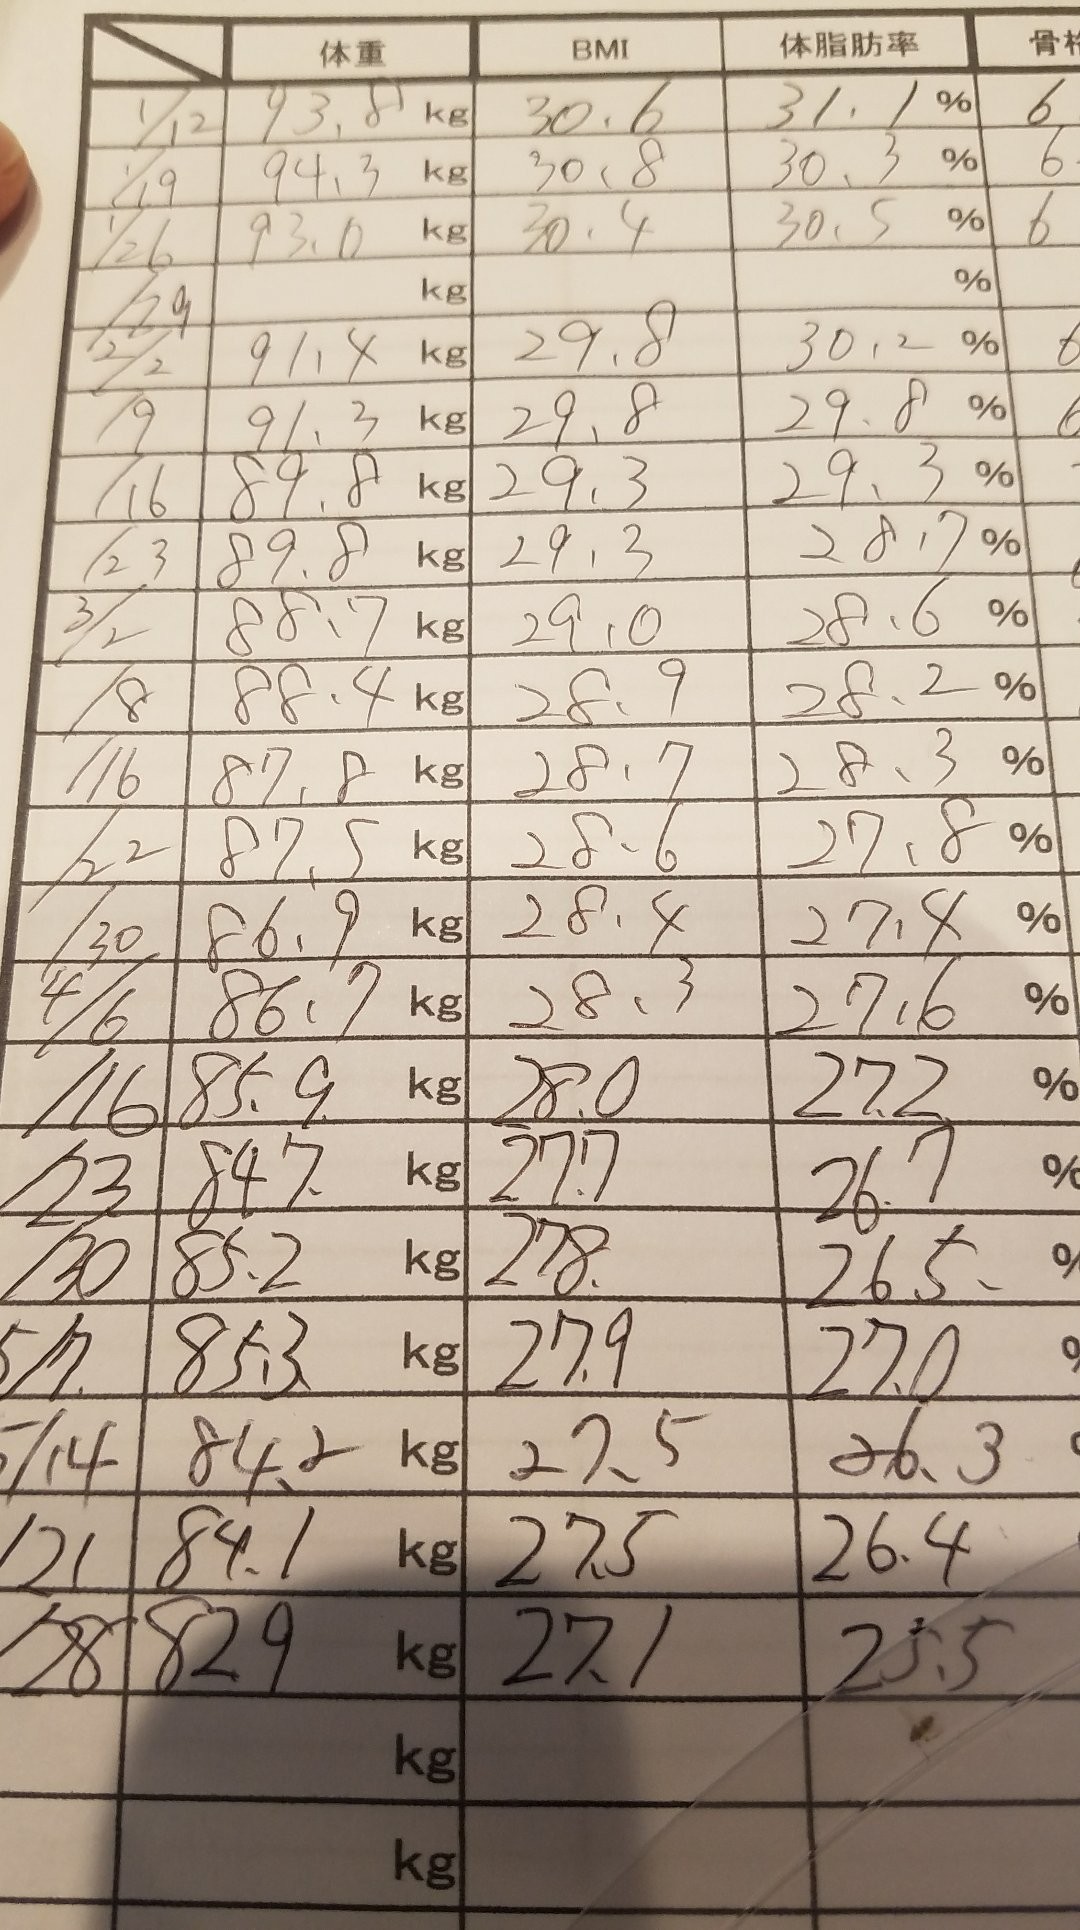 体重 BMI 体脂肪率 骨格
1/12 93.8 kg 30.6 31.1 % 6
1/19 94.3 kg 30.8 30.3 % 6
1/26 93.0 kg 30.4 30.5 % 6
/29 kg %
2/2 91.4 kg 29.8 30.2 % 6
/9 91.3 kg 29.8 29.8 %
/16 89.8 kg 29.3 29.3 %
/23 89.8 kg 29.3 28.7 %
3/2 88.7 kg 29.0 28.6 %
/8 88.4 kg 28.9 28.2 %
/16 87.8 kg 28.7 28.3 %
/22 87.5 kg 28.6 27.8 %
/30 86.9 kg 28.4 27.4 %
4/6 86.7 kg 28.3 27.6 %
/16 85.9 kg 28.0 27.2 %
/23 84.7 kg 27.7 26.7 %
/30 85.2 kg 27.8 26.5 %
5/7 85.3 kg 27.9 27.0 %
5/14 84.2 kg 27.5 26.3
/21 84.1 kg 27.5 26.4
/28 82.9 kg 27.1 25.5
kg
kg